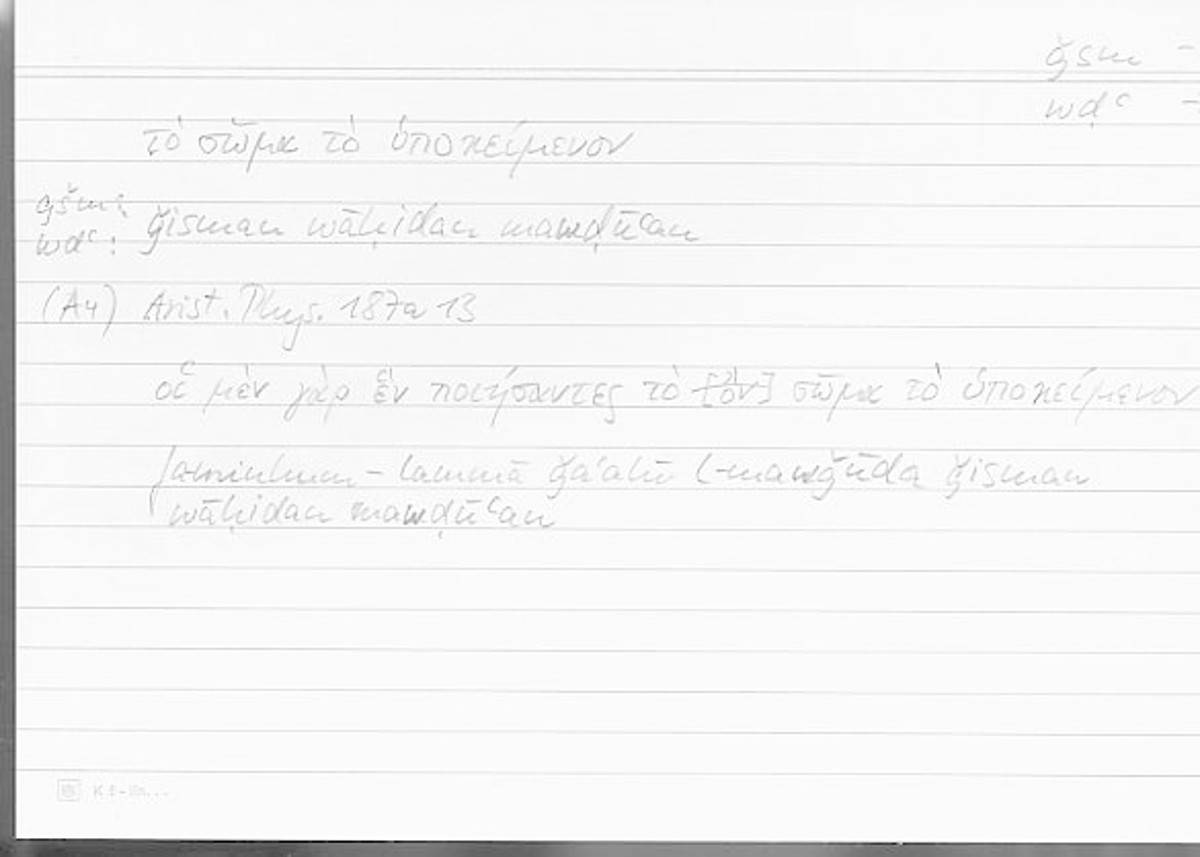 ǧsm –
wḍʿ –
τὸ σῶμα τὸ ὑποκείμενον
ǧšm:
wdʿ:
ǧisman wāḥidan mawḍūʿan
(A4) Arist. Phys. 187a 13
οἱ μὲν γὰρ ἓν ποιήσαντες τὸ [ὂν] σῶμα τὸ ὑποκείμενον
fa-minhum – lammā ǧaʿalū l-mawǧūda ǧisman
wāḥidan mawḍūʿan